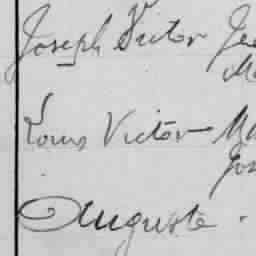 Joseph Victor
Louis Victor
Auguste.